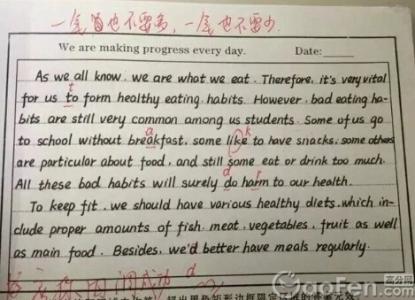 一笔也不要多，一笔也不要少
We are making progress every day. Date:
As we all know, we are what we eat. Therefore, it's very vital
t
for us to form healthy eating habits. However, bad eating ha-
bits are still very common among us students. Some of us go
a k
to school without breakfast, some like to have snacks, some others
are particular about food, and still some eat or drink too much.
d r
All these bad habits will surely do harm to our health.
To keep fit, we should have various healthy diets, which in-
clude proper amounts of fish, meat, vegetables, fruit as well
as main food. Besides, we'd better have meals regularly.
d
GaoFen.com